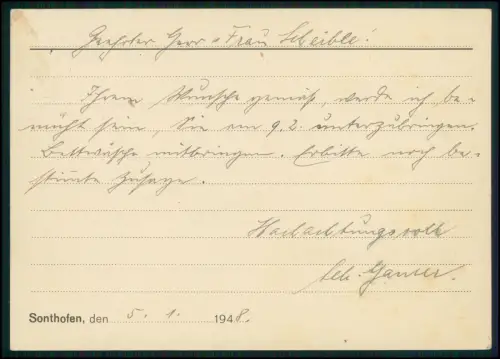 Geehrter Herr u Frau Scheible!
Ihrem Wunsche gemäß, werde ich be-
müht sein, Sie am 9.2. unterzubringen.
Bettwäsche mitbringen. Erbitte noch be-
stimmte Zusage.
Hochachtungsvoll
Ganser.
Sonthofen, den 5. 1. 1948.